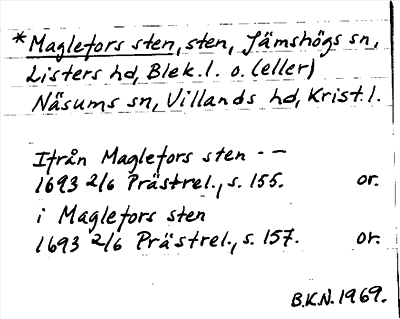 *Maglefors sten, sten, Jämshögs sn,
Listers hd, Blek. l. o. (eller)
Näsums sn, Villands hd, Krist. l.
Ifrån Maglefors sten - —
1693 2/6 Prästrel., s. 155. or.
i Maglefors sten
1693 2/6 Prästrel., s. 157. or.
B.K.N. 1969.